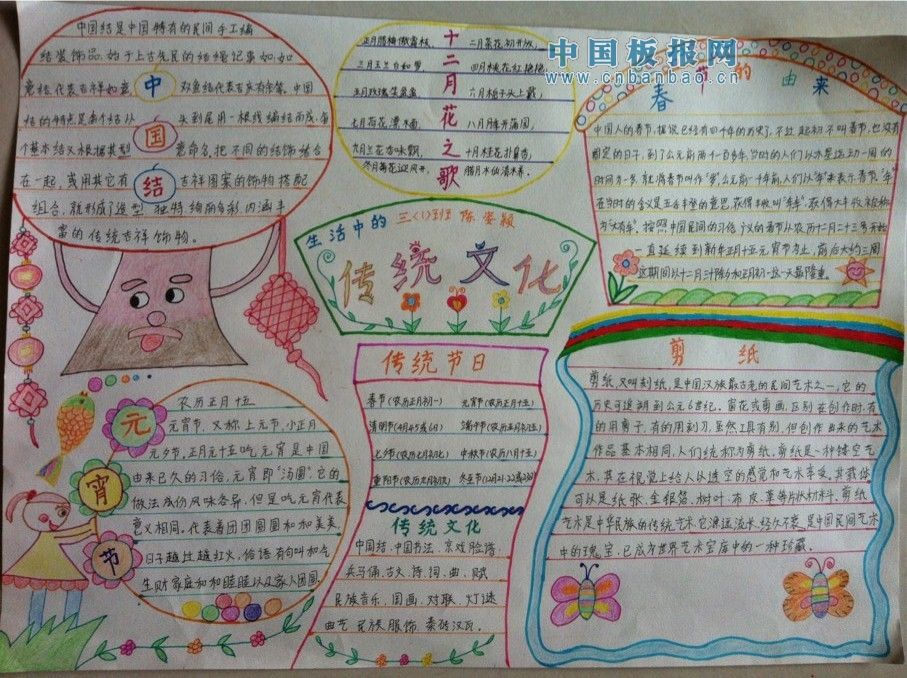 中国结是中国特有的民间手工编
结装饰品,始于上古先民的结绳记事如,如
意结代表吉祥如意,双鱼结代表吉庆有余等。中国
结的特点是每个结从头到尾用一根线编结而成,每
个基本结又根据其型意命名,把不同的结饰结合
在一起,或用其它有吉祥图案的饰物搭配
组合,就形成了造型独特绚丽多彩内涵丰
富的传统吉祥饰物。
中
国
结
十二月花之歌
正月腊梅傲霜枝,
二月茶花初开放,
三月玉兰白如雪
四月桃花红艳艳
六月栀子头上戴,
七月荷花
八月
九月兰花
十月桂花
腊月水仙
中国板报网
www.cnbanbao.cn
春节的由来
中国人的春节,据说已经有四千年的历史了,不过起初不叫春节,也没有
固定的日子,到了公元前两千一百多年,当时的人们以木星运动一周的
时间为一岁,
在当时的含义是五谷丰登的意思,
为"大有年"。按照中国民间的习俗,
一直延续到新年正月十五元宵节为止,前后大约三周
这期间以十二月三十除夕和正月初一这一天最隆重。
生活中的
三(1)班 陈
传统文化
传统节日
春节(农历正月初一)
元宵节(农历正月十五)
清明节(4月4、5或6日)
七夕节(农历七月初七)
中秋节(农历八月十五)
重阳节(农历九月初九)
传统文化
中国结、中国书法、京戏脸谱、
兵马俑、古文、诗、词、曲、赋
民族音乐、国画、对联、灯谜
曲艺 民族服饰、秦砖汉瓦。
元
宵
节
农历正月十五
元宵节,又称上元节,小正月
元夕节,正月十五吃元宵是中国
由来已久的习俗,元宵即"汤圆",它的
做法成份风味各异,但是吃元宵代表
意义相同,代表着团团圆圆和和美美,
日子越过越红火,俗语有句叫和气
生财家庭和和睦睦以及家人团圆
剪纸
剪纸,又叫刻纸,是中国汉族最古老的民间艺术之一,它的
历史可追朔到公元6世纪。窗花或剪画,区别在创作时,有
的用剪子,有的用刻刀,虽然工具有别,但创作出来的艺术
作品基本相同,人们统称为剪纸,剪纸是一种镂空艺
术,其在视觉上给人以透空的感觉和艺术享受,其载体
可以是纸张、金银箔、树叶、布、皮、革等片状材料。剪纸
艺术是中华民族的传统艺术,它源远流长,经久不衰,是中国民间艺术
中的瑰宝,已成为世界艺术宝库中的一种珍藏。